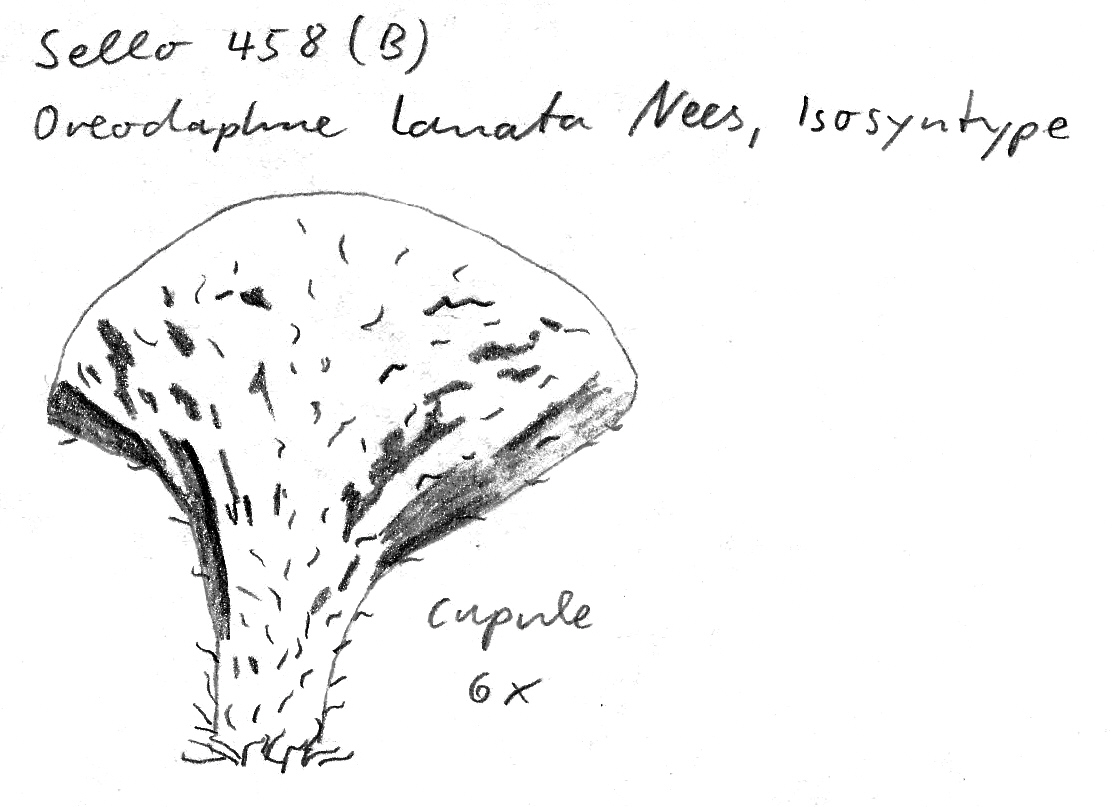 Sello 458 (B)
Oreodaphne lanata Nees, Isosyntype
cupule
6x